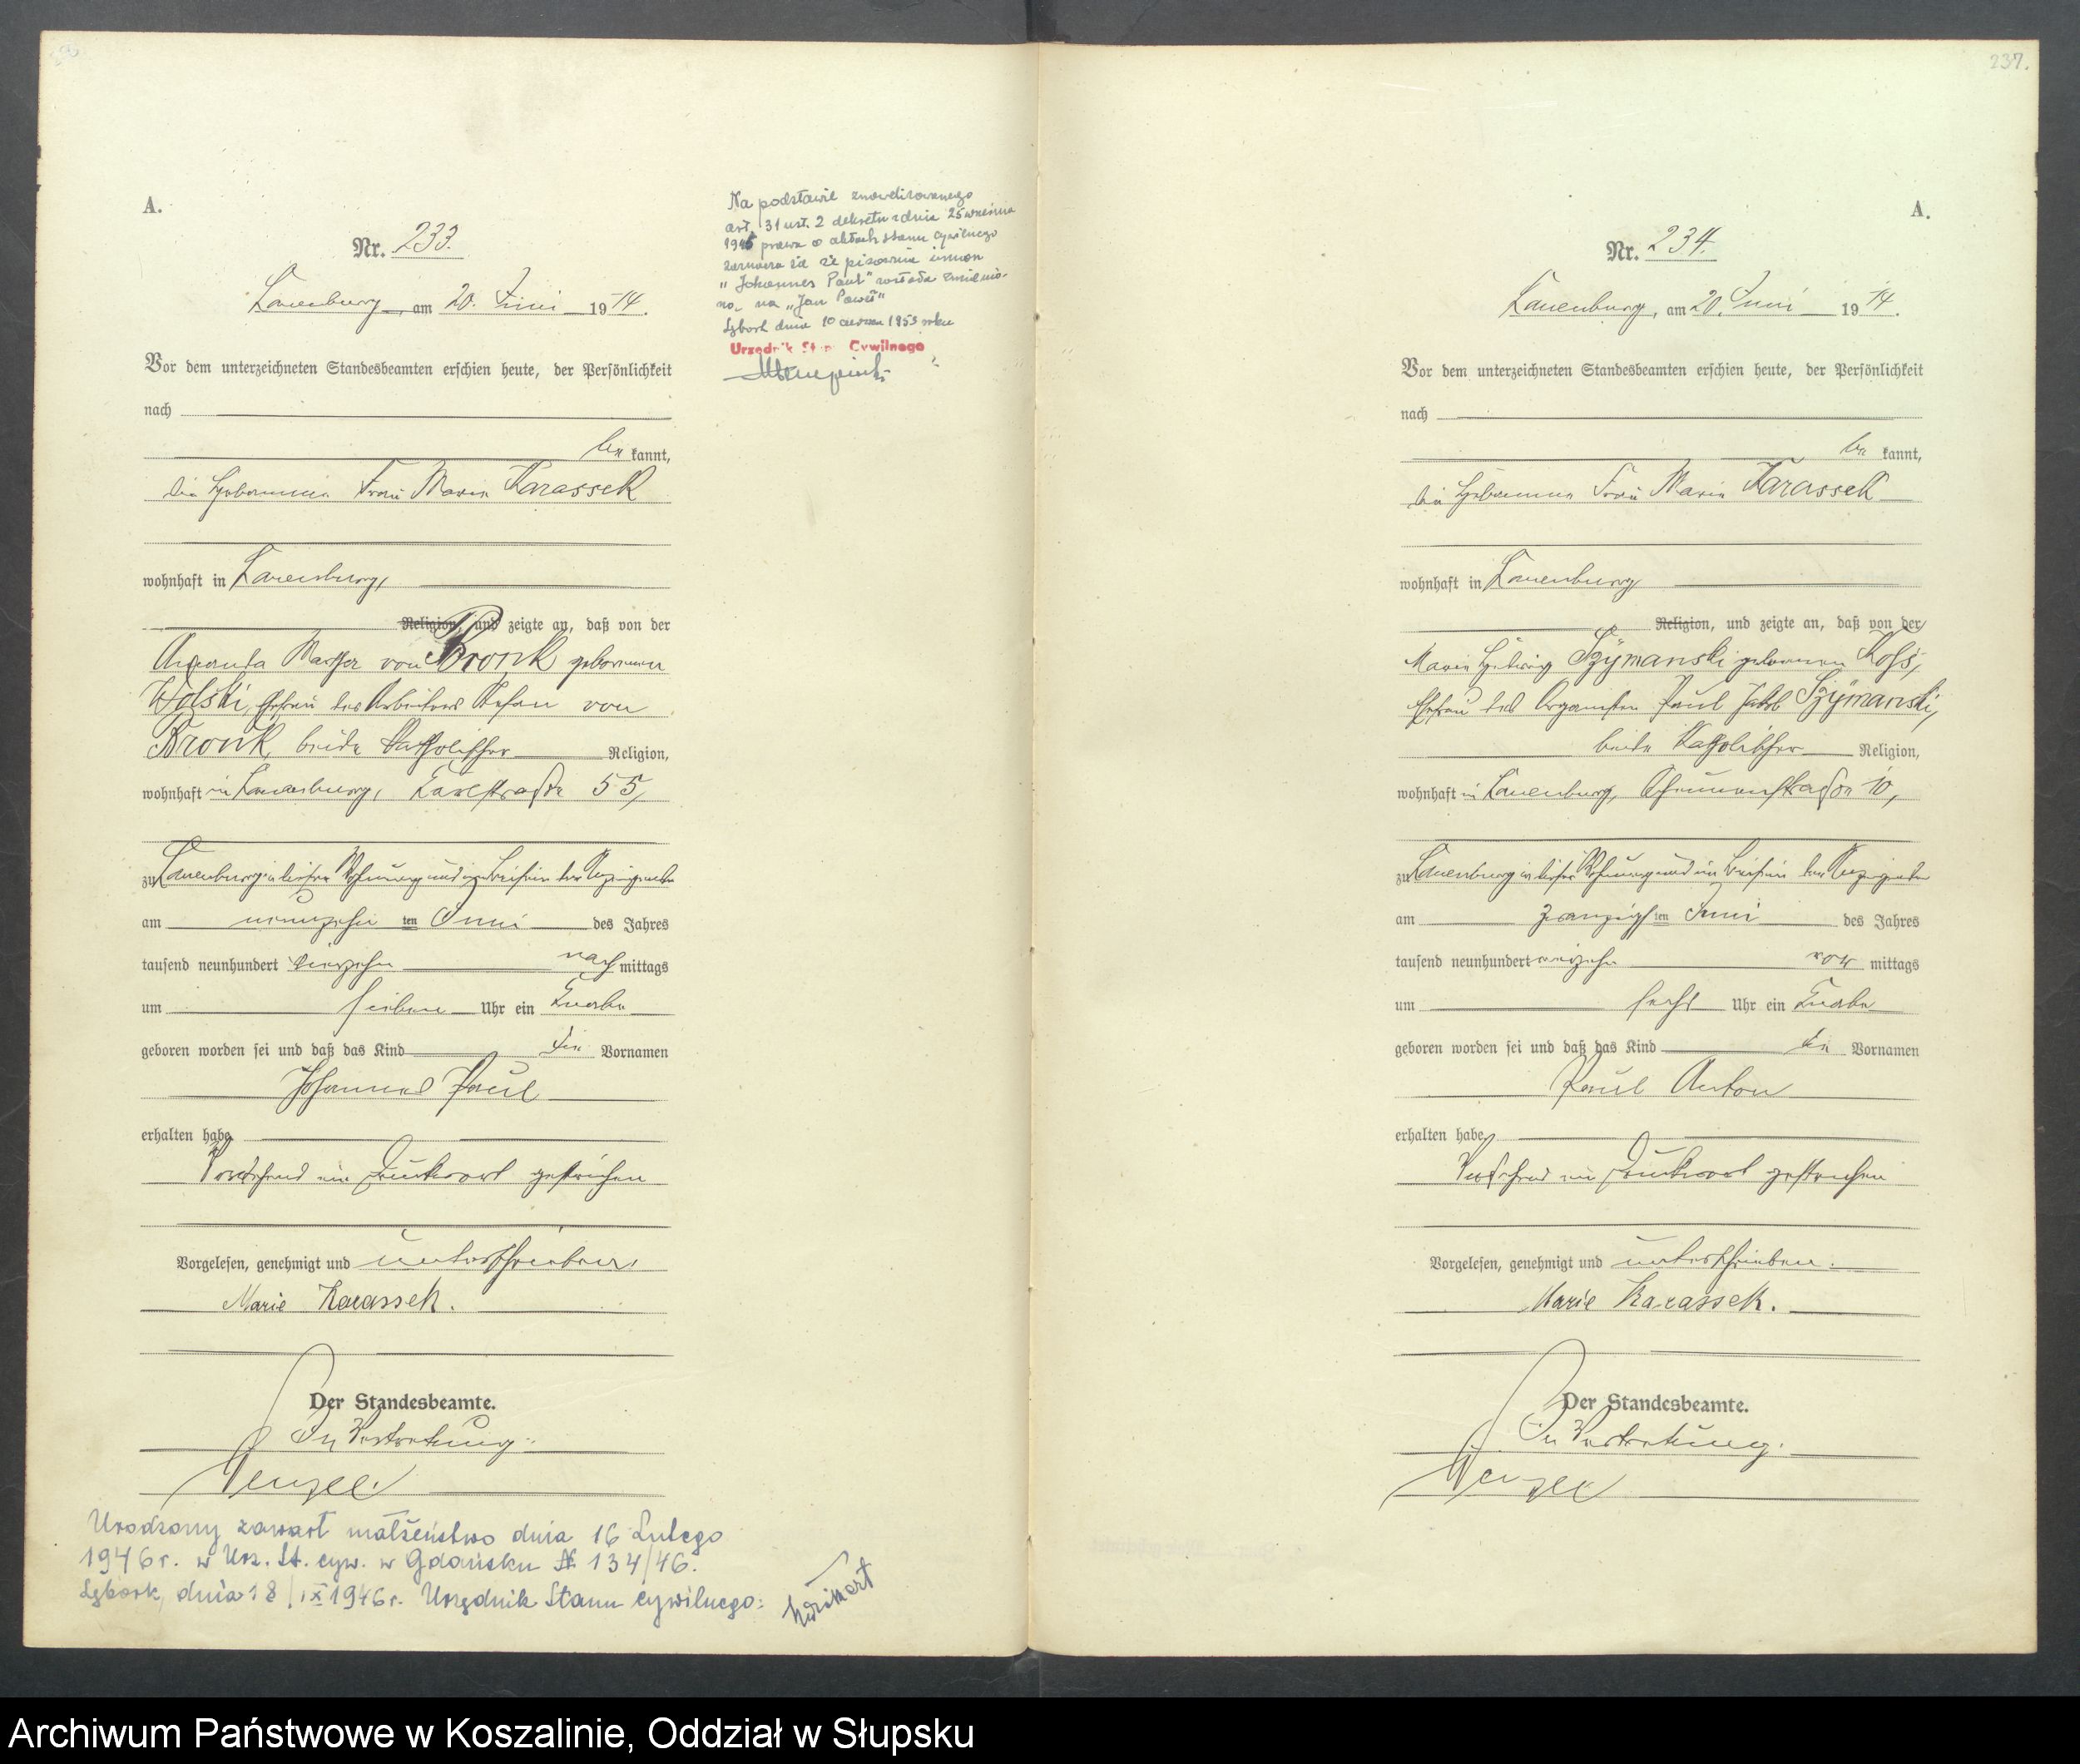 A.
Nr. 233.
Lauenburg, am 20. Juni 1914.
Vor dem unterzeichneten Standesbeamten erschien heute, der Persönlichkeit
nach
be kannt,
die Hebamme Frau Marie Karassek
wohnhaft in Lauenburg,
Religion, und zeigte an, daß von der
Martha von Bronk geborenen
Wolski, Ehefrau des Arbeiters Stefan von
Bronk, beide katholischer Religion,
wohnhaft in Lauenburg, Karlstraße 55,
zu Lauenburg in dieser Wohnung und im Beisein der Anzeigenden
am neunzehn ten Juni des Jahres
tausend neunhundert vierzehn nachmittags
um sieben Uhr ein Knabe
geboren worden sei und daß das Kind die Vornamen
Johannes Paul
erhalten habe
Vorstehend ein Druckwort gestrichen
Vorgelesen, genehmigt und unterschrieben.
Marie Karassek.
Der Standesbeamte.
In Vertretung:
Wenzel.
Urodzony zawarł małżeństwo dnia 16 Lutego
1946 r. w Urz. St. cyw. w Gdańsku № 134/46.
Lębork, dnia 18/IX 1946 r. Urzędnik Stanu cywilnego:
Na podstawie znowelizowanego
art. 31 ust. 2 dekretu z dnia 25 września
1945 prawa o aktach stanu cywilnego
że pisownia imion
"Johannes Paul" została zmienio-
na, na "Jan Paweł"
Lębork dnia 10 czerwca 1953 roku
Urzędnik Stanu Cywilnego
237.
A.
Nr. 234.
Lauenburg, am 20. Juni 1914.
Vor dem unterzeichneten Standesbeamten erschien heute, der Persönlichkeit
nach
be kannt,
die Hebamme Frau Marie Karassek
wohnhaft in Lauenburg
Religion, und zeigte an, daß von der
Marie Hedwig Szymanski geborenen Koß,
Ehefrau des Organisten Paul Jakob Szymanski,
beide katholischer Religion,
wohnhaft in Lauenburg, Scheunenstraße 10,
zu Lauenburg in dieser Wohnung und im Beisein der Anzeigenden
am zwanzigsten Juni des Jahres
tausend neunhundert vierzehn vor mittags
um sechs Uhr ein Knabe
geboren worden sei und daß das Kind die Vornamen
Paul Anton
erhalten habe
Vorstehend ein Druckwort gestrichen
Vorgelesen, genehmigt und unterschrieben.
Marie Karassek.
Der Standesbeamte.
In Vertretung:
Wenzel
Archiwum Państwowe w Koszalinie, Oddział w Słupsku